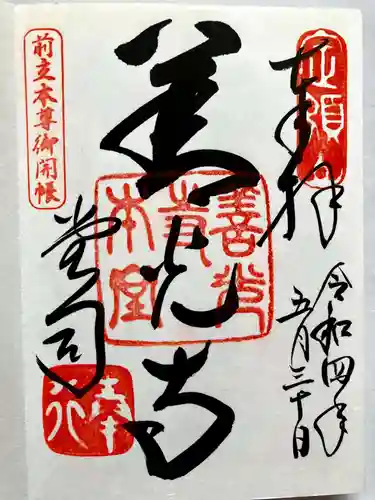 奉拝
令和四年
五月三十日
善光寺
堂司
前立本尊御開帳
善光
寺
本堂
奉
行